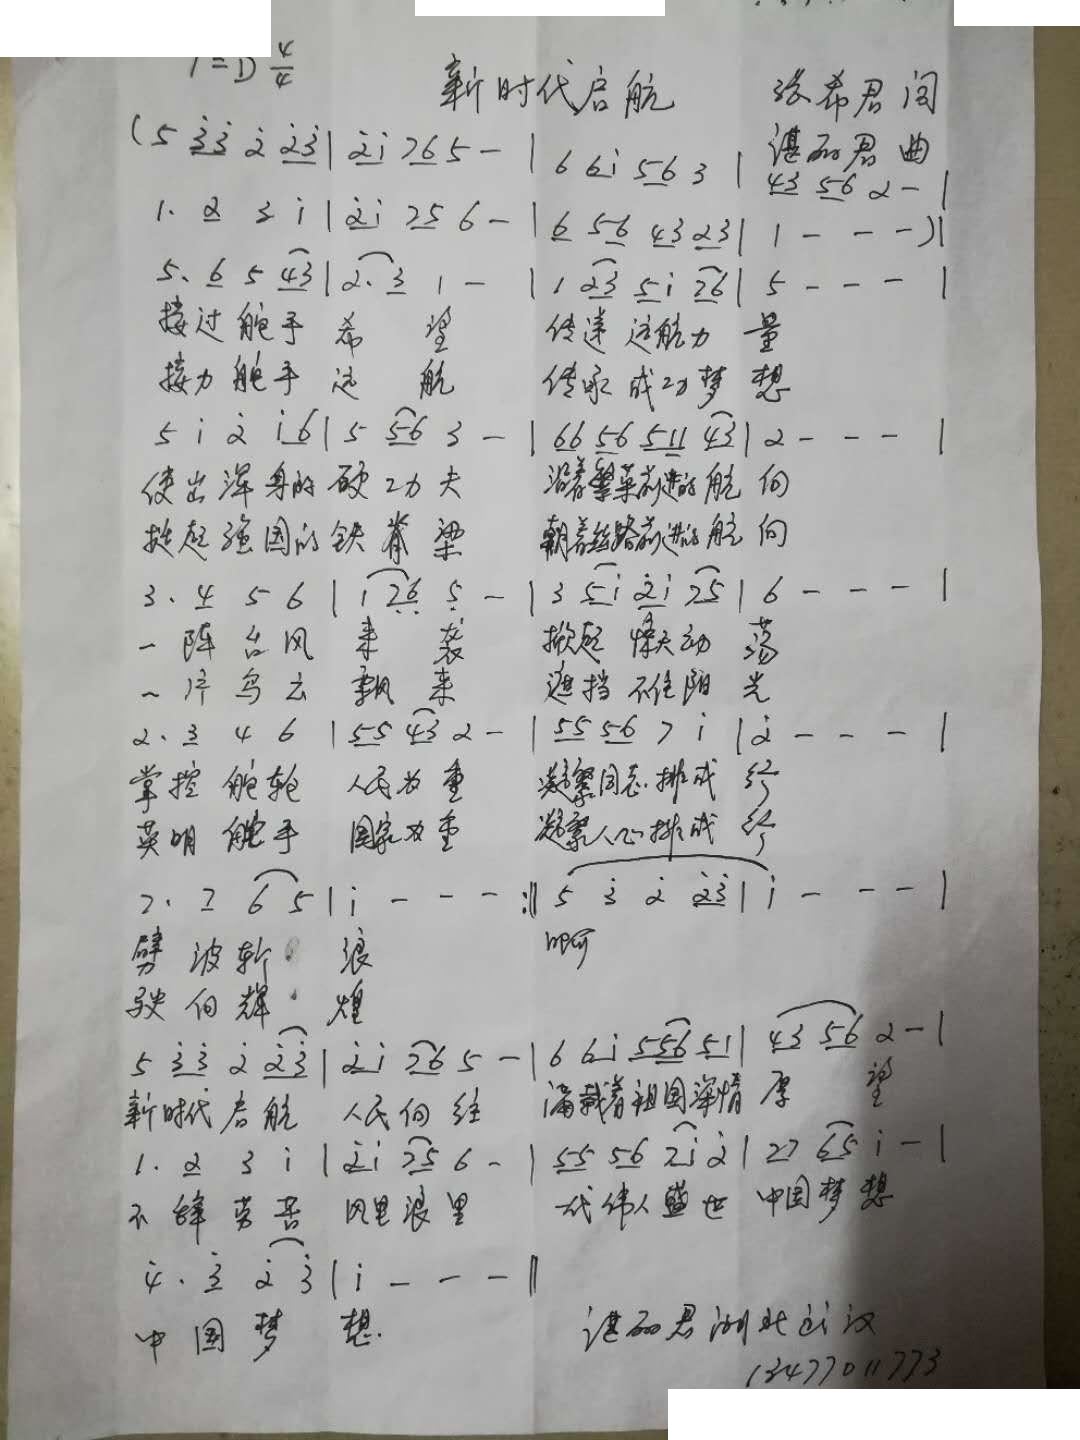 1=D 4/4
新时代启航 张希君词
谌丽君曲
(5 3̇3̇ 2̇ 2̇3̇ | 2̇i 76 5 - | 6 6i 56 3 | 43 56 2 - |
1. 2 3 i | 2̇i 75 6 - | 6 56 43 23 | 1 - - - ) |
5. 6 5 43 | 2. 3 1 - | 1 23 5i 76 | 5 - - - |
接过舵手希望 传递远航力量
接力舵手远航 传承成功梦想
5 i 2̇ i6 | 5 56 3 - | 66 56 511 43 | 2 - - - |
使出浑身的硬功夫 沿着繁荣前进的航向
挺起强国的铁脊梁 朝着丝路前进的航向
3. 4 5 6 | i 76 5 - | 3 5i 2̇i 75 | 6 - - - |
一阵台风来袭 掀起 天动荡
一片乌云飘来 遮挡不住阳光
2. 3 4 6 | 55 43 2 - | 55 56 7 i | 2̇ - - - |
掌控舵轮 人民为重 凝聚同志排成行
英明舵手 国家为重 凝聚人心排成行
7. 7 6 5 | i - - - :‖ 5 3̇ 2̇ 2̇3̇ | i - - - |
劈波斩浪 啊
驶向辉煌
5 3̇3̇ 2̇ 2̇3̇ | 2̇i 76 5 - | 6 6i 556 51 | 43 56 2 - |
新时代启航 人民向往 满载着祖国深情厚望
1. 2 3 i | 2̇i 75 6 - | 55 56 7i 2̇ | 77 65 i - |
不辞劳苦 风里浪里 一代伟人盛世 中国梦想
4̇. 3̇ 2̇ 3̇ | i - - - ‖
中国梦想
谌丽君湖北武汉
13477011773